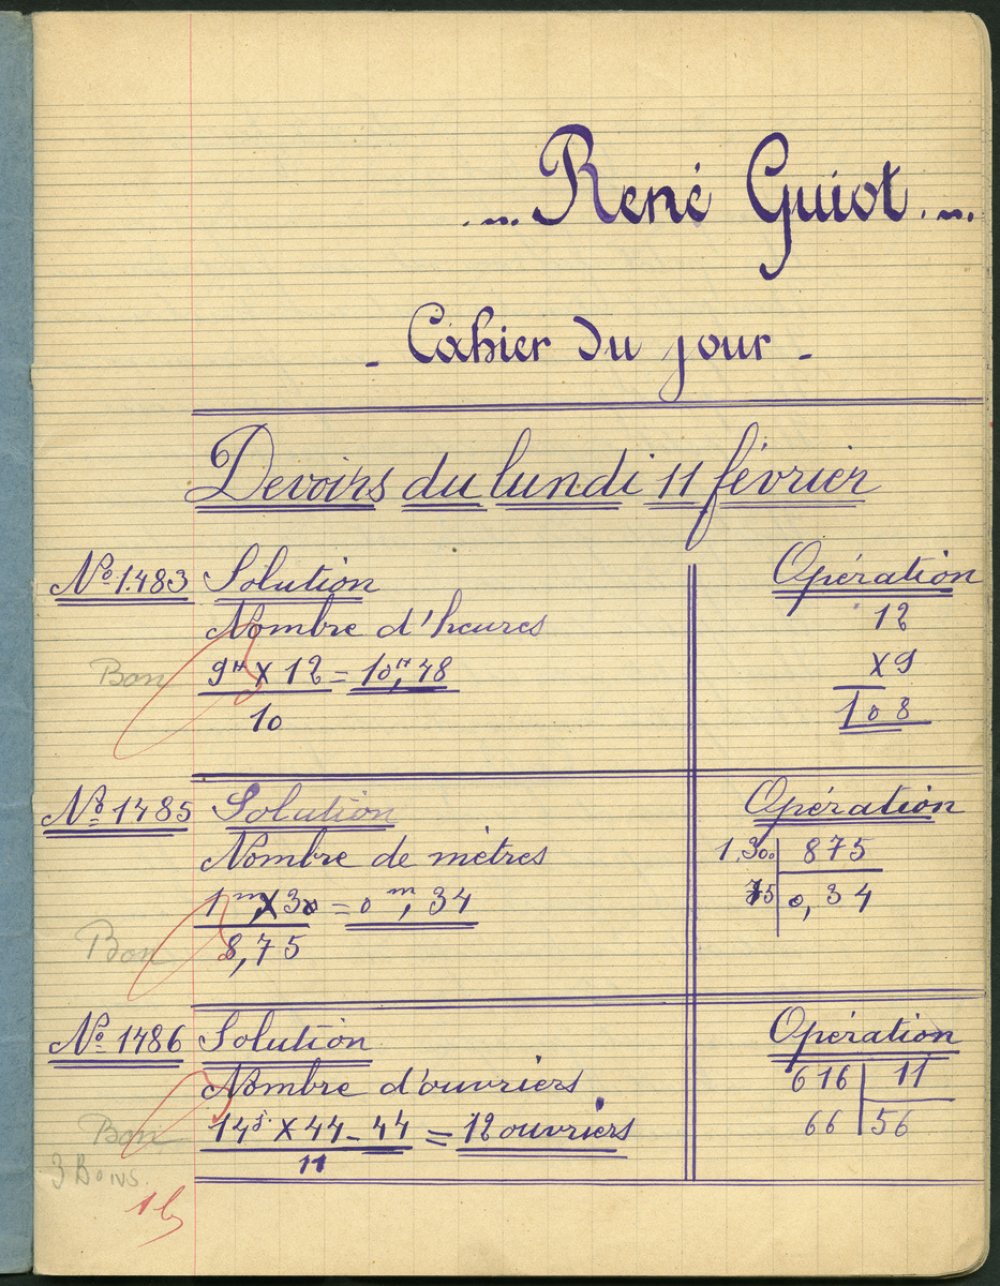 ... René Guiot ...
- Cahier du jour -
Devoirs du lundi 11 février
Nº 1483 Solution Opération
Nombre d'heures 12
Bon 9ᴴ X 12 = 10ᴴ, 48 X 9
10 108
Nº 1485 Solution Opération
Nombre de mètres 1,300 875
1ᵐ, X 30 = 0ᵐ, 34 75 0,34
Bon 8,75
Nº 1486 Solution Opération
Nombre d'ouvriers 616 11
Bon 14ʲ X 44 - 44 = 12 ouvriers 66 56
11
3 Bons